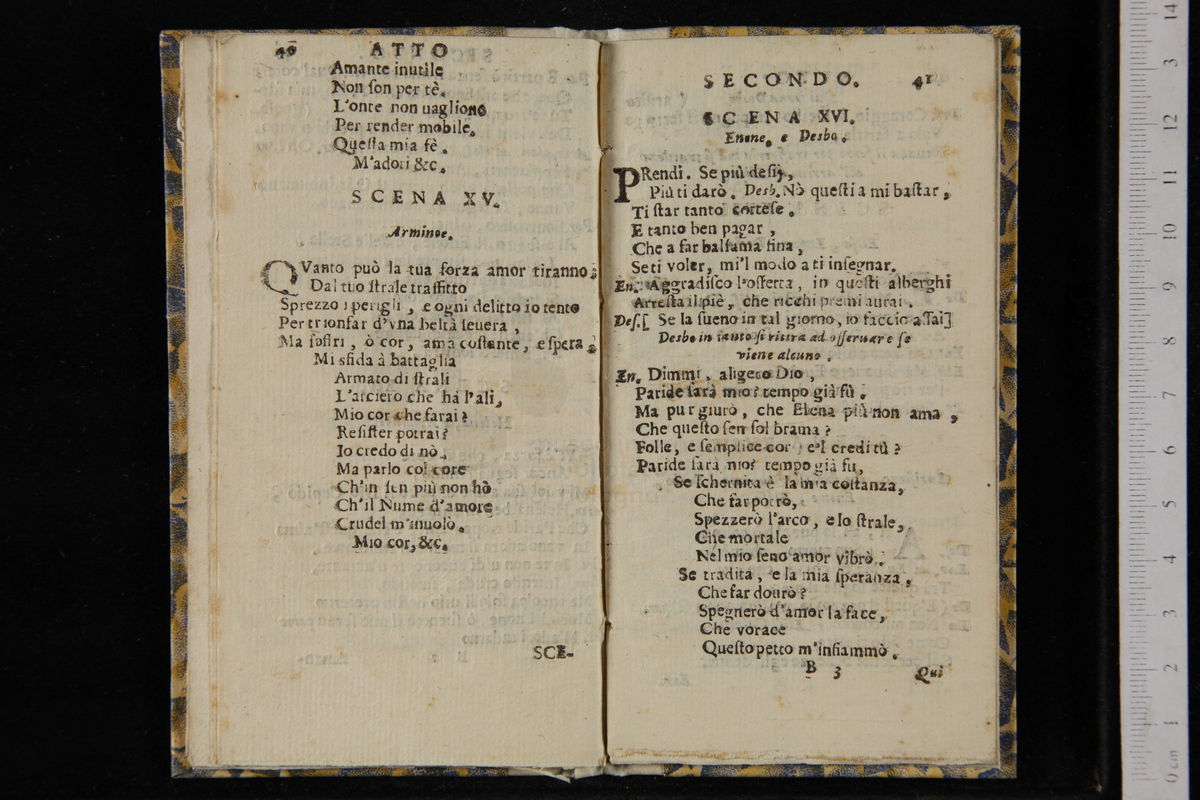 40 ATTO
Amante inutile
Non ſon per tè.
L'onte non uagliono
Per render mobile.
Queſta mia fè.
M'adori &c.
SCENA XV.
Arminoe.
QVanto può la tua forza amor tiranno;
Dal tuo ſtrale traffitto
Sprezzo i perigli, e ogni delitto io tento
Per trionfar d'vna beltà ſeuera,
Ma ſoffri, ò cor, ama coſtante, e ſpera;
Mi sfida à battaglia
Armato di ſtrali
L'arciero che hà l'ali,
Mio cor che farai?
Reſiſter potrai?
Io credo di nò.
Ma parlo col core
Ch'in ſen più non hò
Ch'il Nume d'amore
Crudel m'inuolò.
Mio cor, &c.
SCE-
SECONDO. 41
SCENA XVI.
Enone, e Desbo.
PRendi. Se più deſij,
Più ti darò. Desb. Nò queſti a mi baſtar,
Ti ſtar tanto corteſe.
E tanto ben pagar,
Che a far balſama fina,
Se ti voler, mi'l modo a ti inſegnar.
En. Aggradiſco l'offerta, in queſti alberghi
Arreſta il piè, che ricchi premi aurai.
Deſ.[ Se la ſueno in tal giorno, io faccio aſſai]
Desbo in tanto ſi ritira ad oſſeruare ſe
viene alcuno.
En. Dimmi, aligero Dio,
Paride ſarà mio? tempo già fù.
Ma pur giurò, che Elena più non ama,
Che queſto ſen ſol brama?
Folle, e ſemplice cor, e'l credi tù?
Paride ſarà mio? tempo già fu,
Se ſchernita è la mia coſtanza,
Che far potrò,
Spezzerò l'arco, e lo ſtrale,
Che mortale
Nel mio ſeno amor vibrò.
Se tradita, e la mia ſperanza,
Che far dourò?
Spegnerò d'amor la face,
Che vorace
Queſto petto m'infiammò.
B 3 Qui